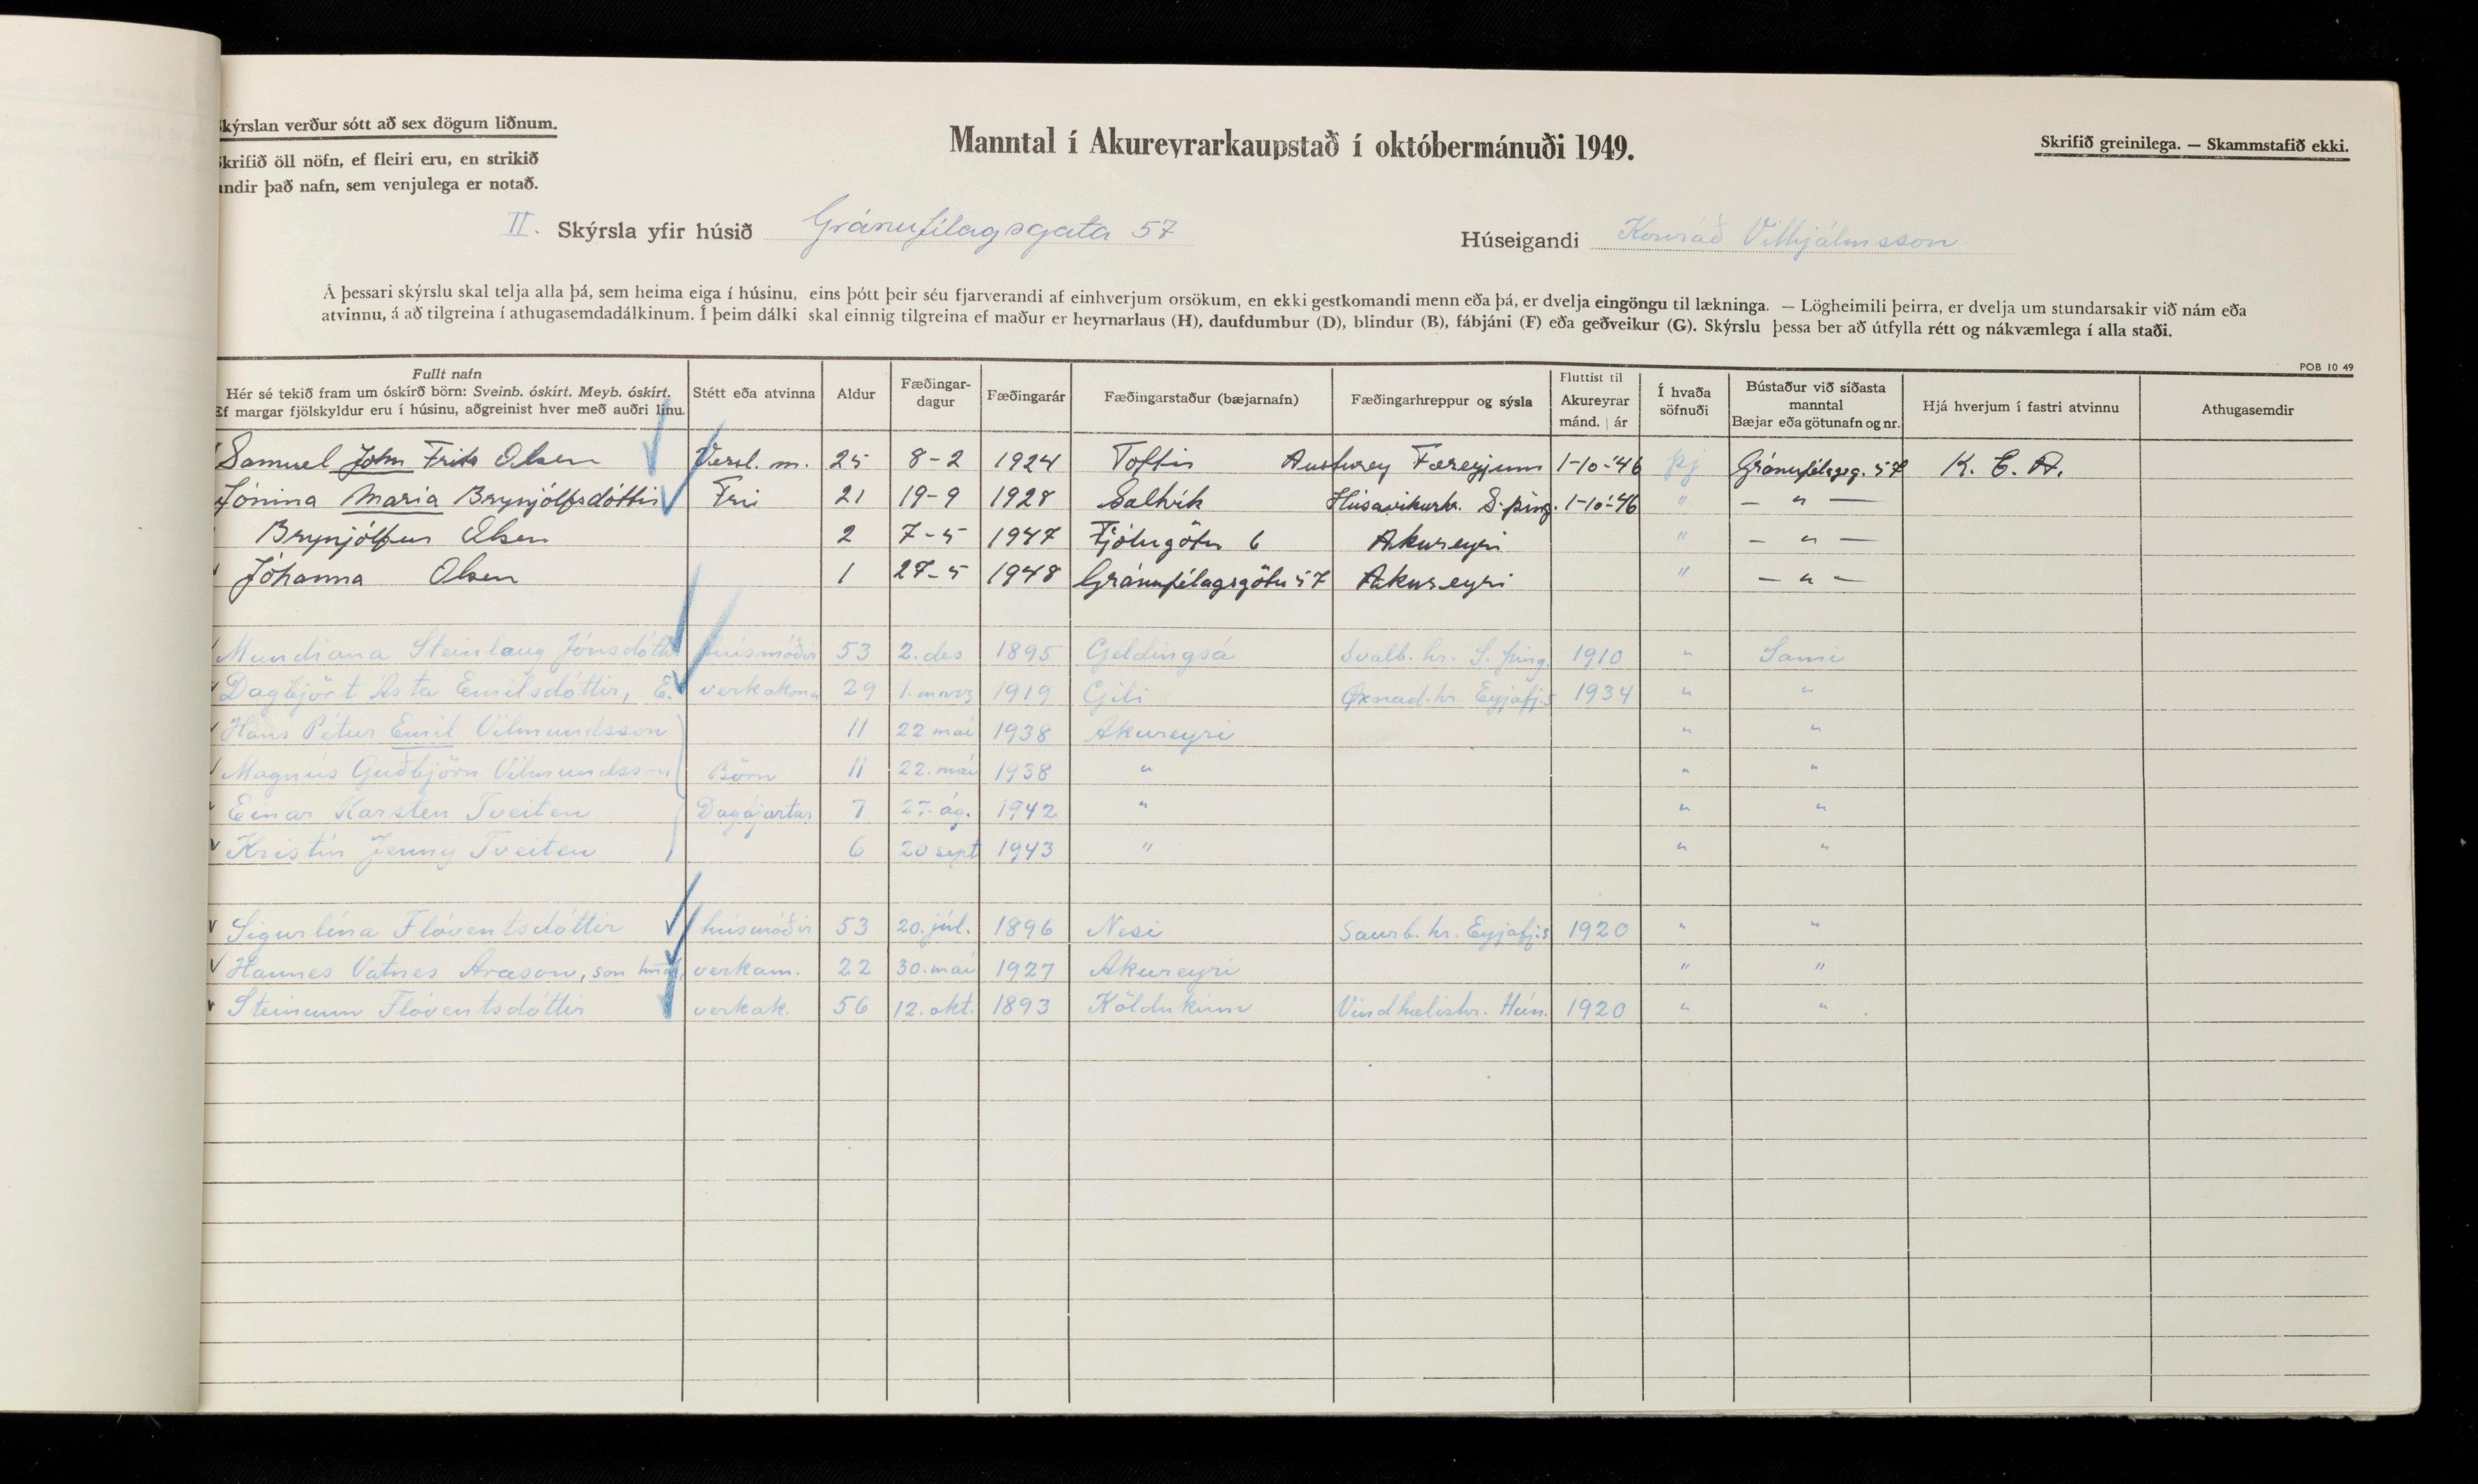 Skýrslan verður sótt að sex dögum liðnum.
Skrifið öll nöfn, ef fleiri eru, en strikið
undir það nafn, sem venjulega er notað.
Manntal í Akureyrarkaupstað í októbermánuði 1949.
Skrifið greinilega. — Skammstafið ekki.
II. Skýrsla yfir húsið Gránufélagsgata 57 Húseigandi Konráð Vilhjálmsson
Á þessari skýrslu skal telja alla þá, sem heima eiga í húsinu, eins þótt þeir séu fjarverandi af einhverjum orsökum, en ekki gestkomandi menn eða þá, er dvelja eingöngu til lækninga. — Lögheimili þeirra, er dvelja um stundarsakir við nám eða
atvinnu, á að tilgreina í athugasemdadálkinum. Í þeim dálki skal einnig tilgreina ef maður er heyrnarlaus (H), daufdumbur (D), blindur (B), fábjáni (F) eða geðveikur (G). Skýrslu þessa ber að útfylla rétt og nákvæmlega í alla staði.
POB 10 49
Fullt nafn
Hér sé tekið fram um óskírð börn: Sveinb. óskírt. Meyb. óskírt.
Ef margar fjölskyldur eru í húsinu, aðgreinist hver með auðri línu.
Stétt eða atvinna
Aldur
Fæðingar-
dagur
Fæðingarár
Fæðingarstaður (bæjarnafn)
Fæðingarhreppur og sýsla
Fluttist til
Akureyrar
mánd. | ár
Í hvaða
söfnuði
Bústaður við síðasta
manntal
Bæjar eða götunafn og nr.
Hjá hverjum í fastri atvinnu
Athugasemdir
Samuel John Frits Olsen Versl. m. 25 8-2 1924 Toftir Austurey Færeyjum 1-10-'46 Þj Gránufélagsg. 57 K. E. A.
Jónína María Brynjólfsdóttir Frú 21 19-9 1928 Saltvík Húsavíkurhr. S-þing. 1-10-'46 " — " —
Brynjólfur Olsen 2 7-5 1947 Fjólugötu 6 Akureyri " — " —
Jóhanna Olsen 1 27-5 1948 Gránufélagsgötu 57 Akureyri " — " —
Mundíana Steinlaug Jónsdóttir húsmóðir 53 2. des 1895 Geldingsá Svalb. hr. S. þing. 1910 " Sami
Dagbjört Ásta Emilsdóttir, E. verkakona 29 1. marz 1919 Gili Öxnad. hr. Eyjafj.s 1934 " "
Hans Pétur Emil Vilmundsson 11 22 maí 1938 Akureyri " "
Magnús Guðbjörn Vilmundsson Börn 11 22. maí 1938 " " "
Einar Karsten Tveiten Dagbjartar 7 27. ág. 1942 " " "
Kristín Jenny Tveiten 6 20 sept 1943 " " "
Sigurlína Flóventsdóttir húsmóðir 53 20. júl. 1896 Nesi Saurb. hr. Eyjafj.s 1920 " "
Hannes Vatnes Arason, son verkam. 22 30. maí 1927 Akureyri " "
Steinunn Flóventsdóttir verkak. 56 12. okt. 1893 Köldukinn Vindhælishr. Hún. 1920 " "